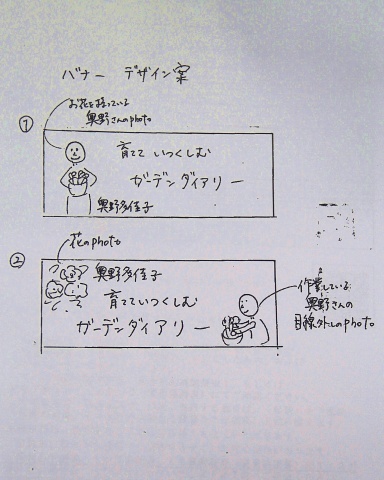 バナー デザイン案
お花を持っている
奥野さんのphoto
①
育てて いつくしむ
ガーデンダイアリー
奥野多佳子
花のphoto
②
奥野多佳子
育てていつくしむ
ガーデンダイアリー
作業している
奥野さんの
目線外しのphoto